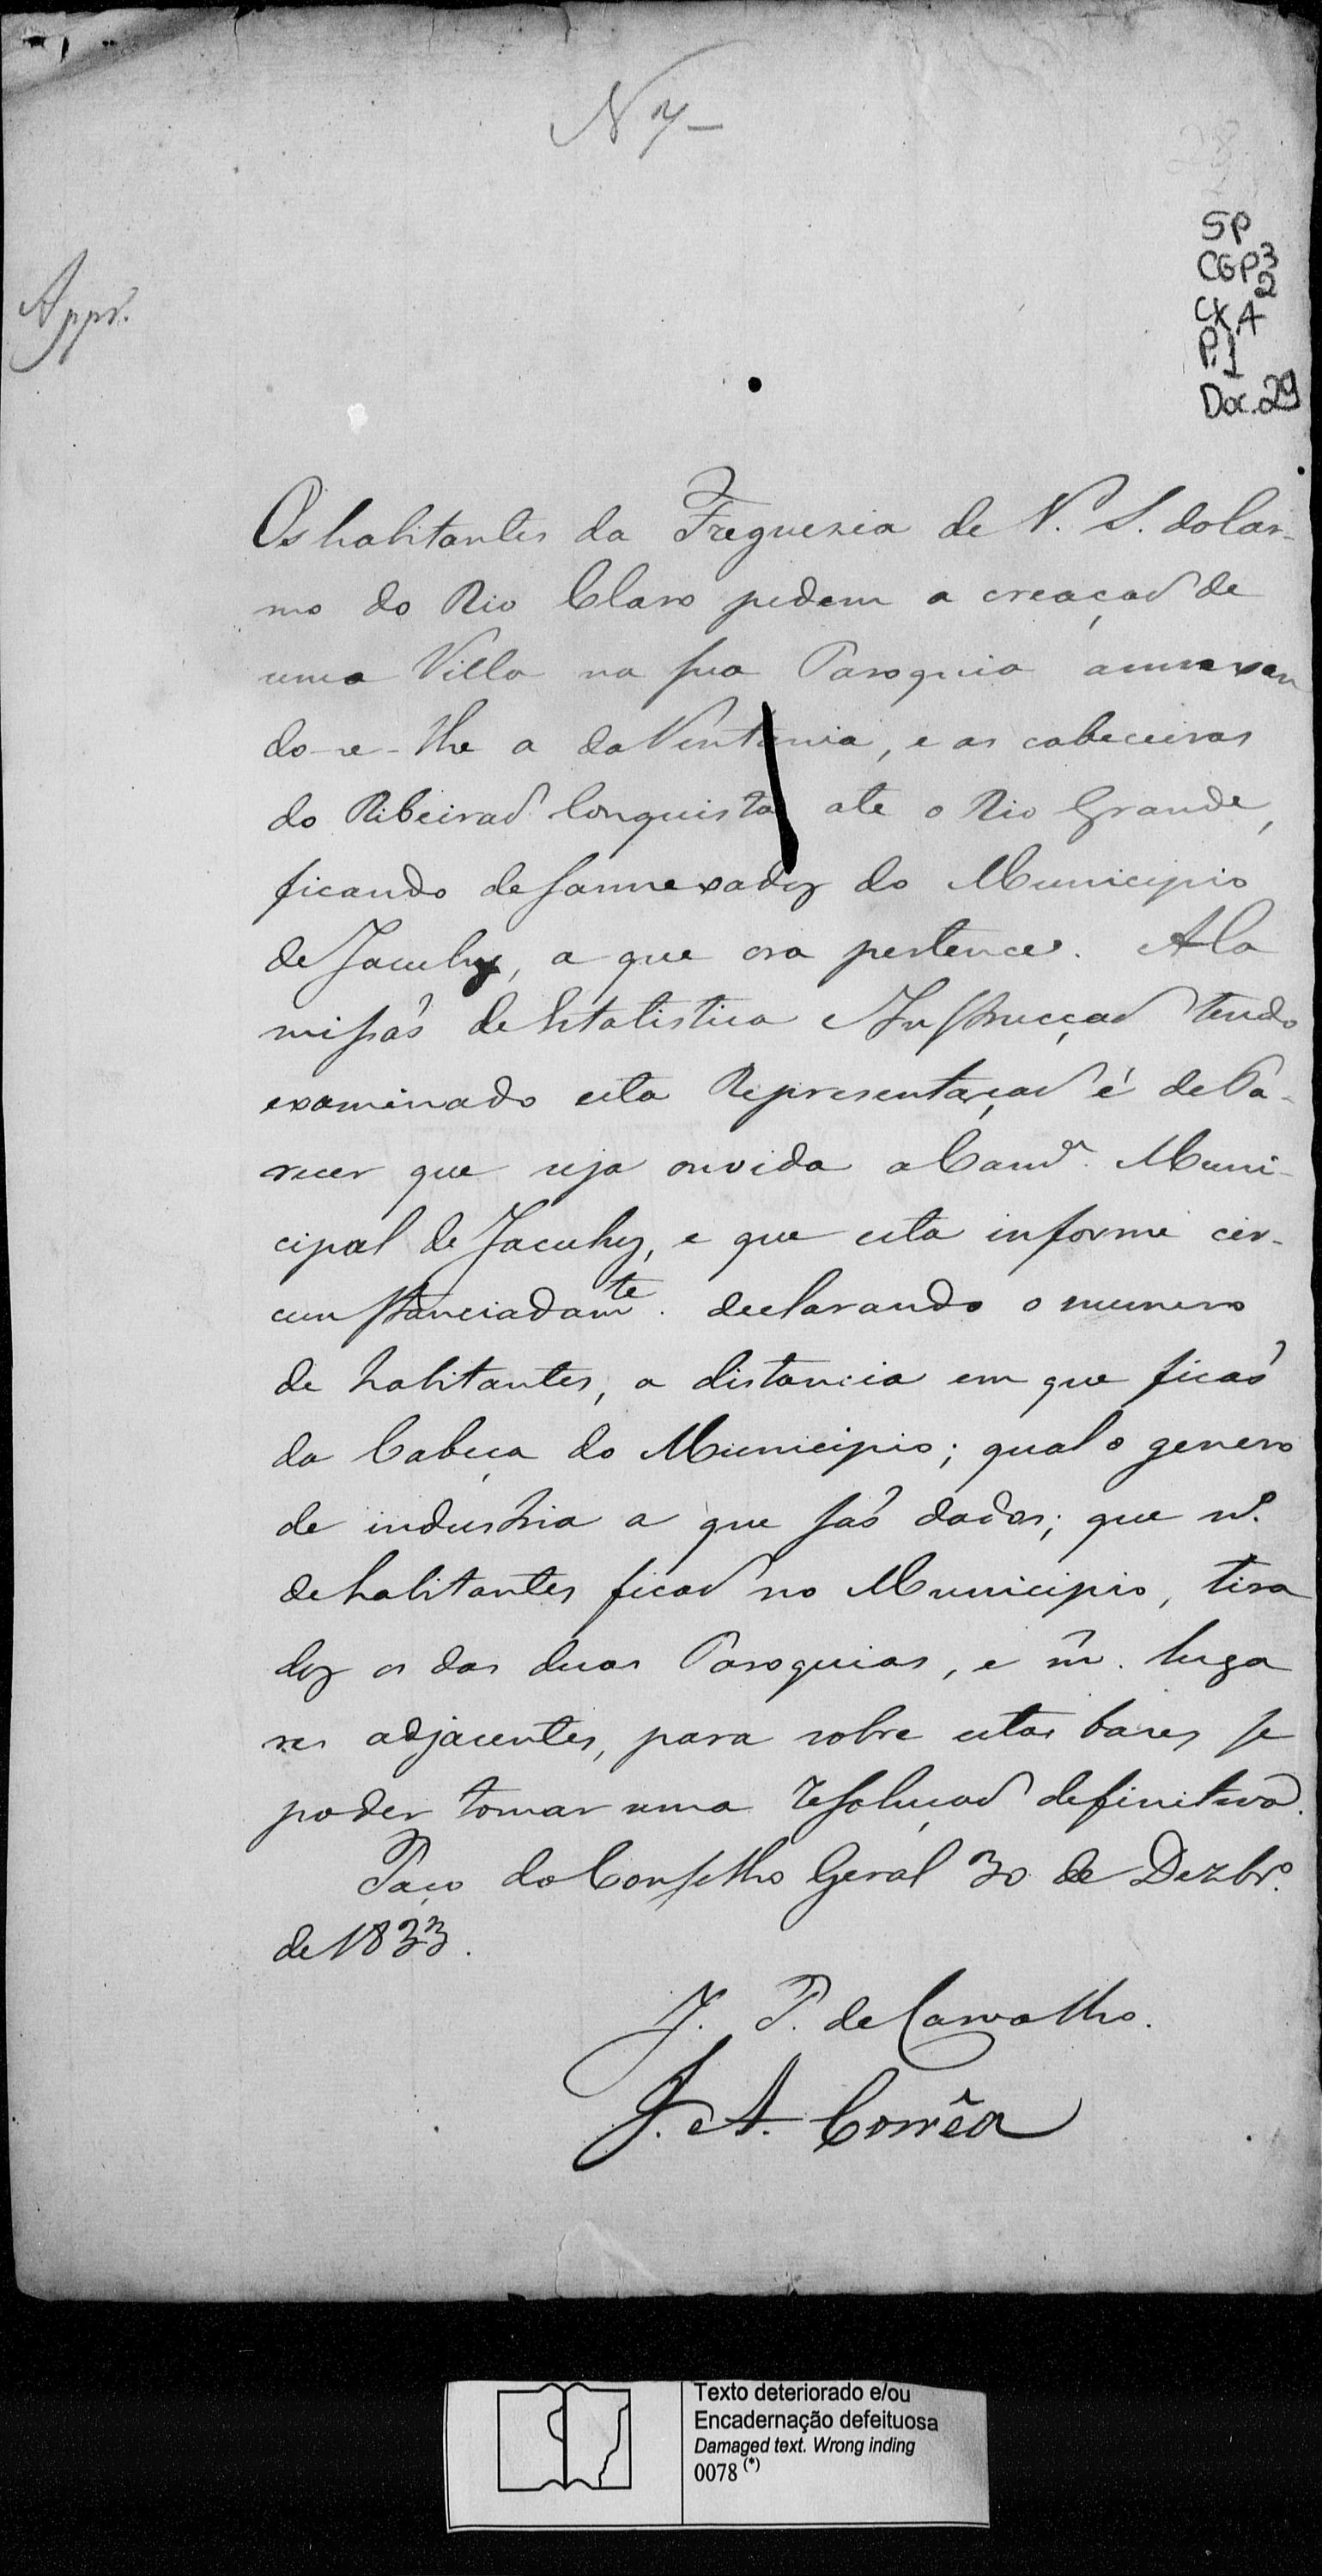 N 7-
SP
CGP3
Cx 42
P.1
Doc.29
Appr.
Os habitantes da Freguezia de N. S. do Car-
mo do Rio Claro pedem a creaçaõ de
uma Villa na sua Paroquia annexan
do-se-lhe a da Ventania, e as cabeceiras
do Ribeiraõ Conquista até o Rio Grande,
ficando desannexados do Municipio
de Jacuhy, a que ora pertence. A Co
missaõ de Estatistica e Instrucçaõ tendo
examinado esta Representaçaõ é de Pa-
recer que seja ouvida a Camrª. Muni-
cipal de Jacuhy, e que esta informe cir-
cunstanciadamte. declarando o numero
de habitantes, a distancia em que ficaõ
da Cabeça do Municipio; qual o genero
de industria a que saõ dados; que nº.
de habitantes ficaõ no Municipio, tira
dos os das duas Paroquias, e m. luga
res adjacentes, para sobre estas bases se
poder tomar uma resoluçaõ definitiva.
Paço do Conselho Geral 30 de Dezbrº.
de 1833.
J. P. de Carvalho.
J. A. Corrêa
Texto deteriorado e/ou
Encadernação defeituosa
Damaged text. Wrong inding
0078 (*)